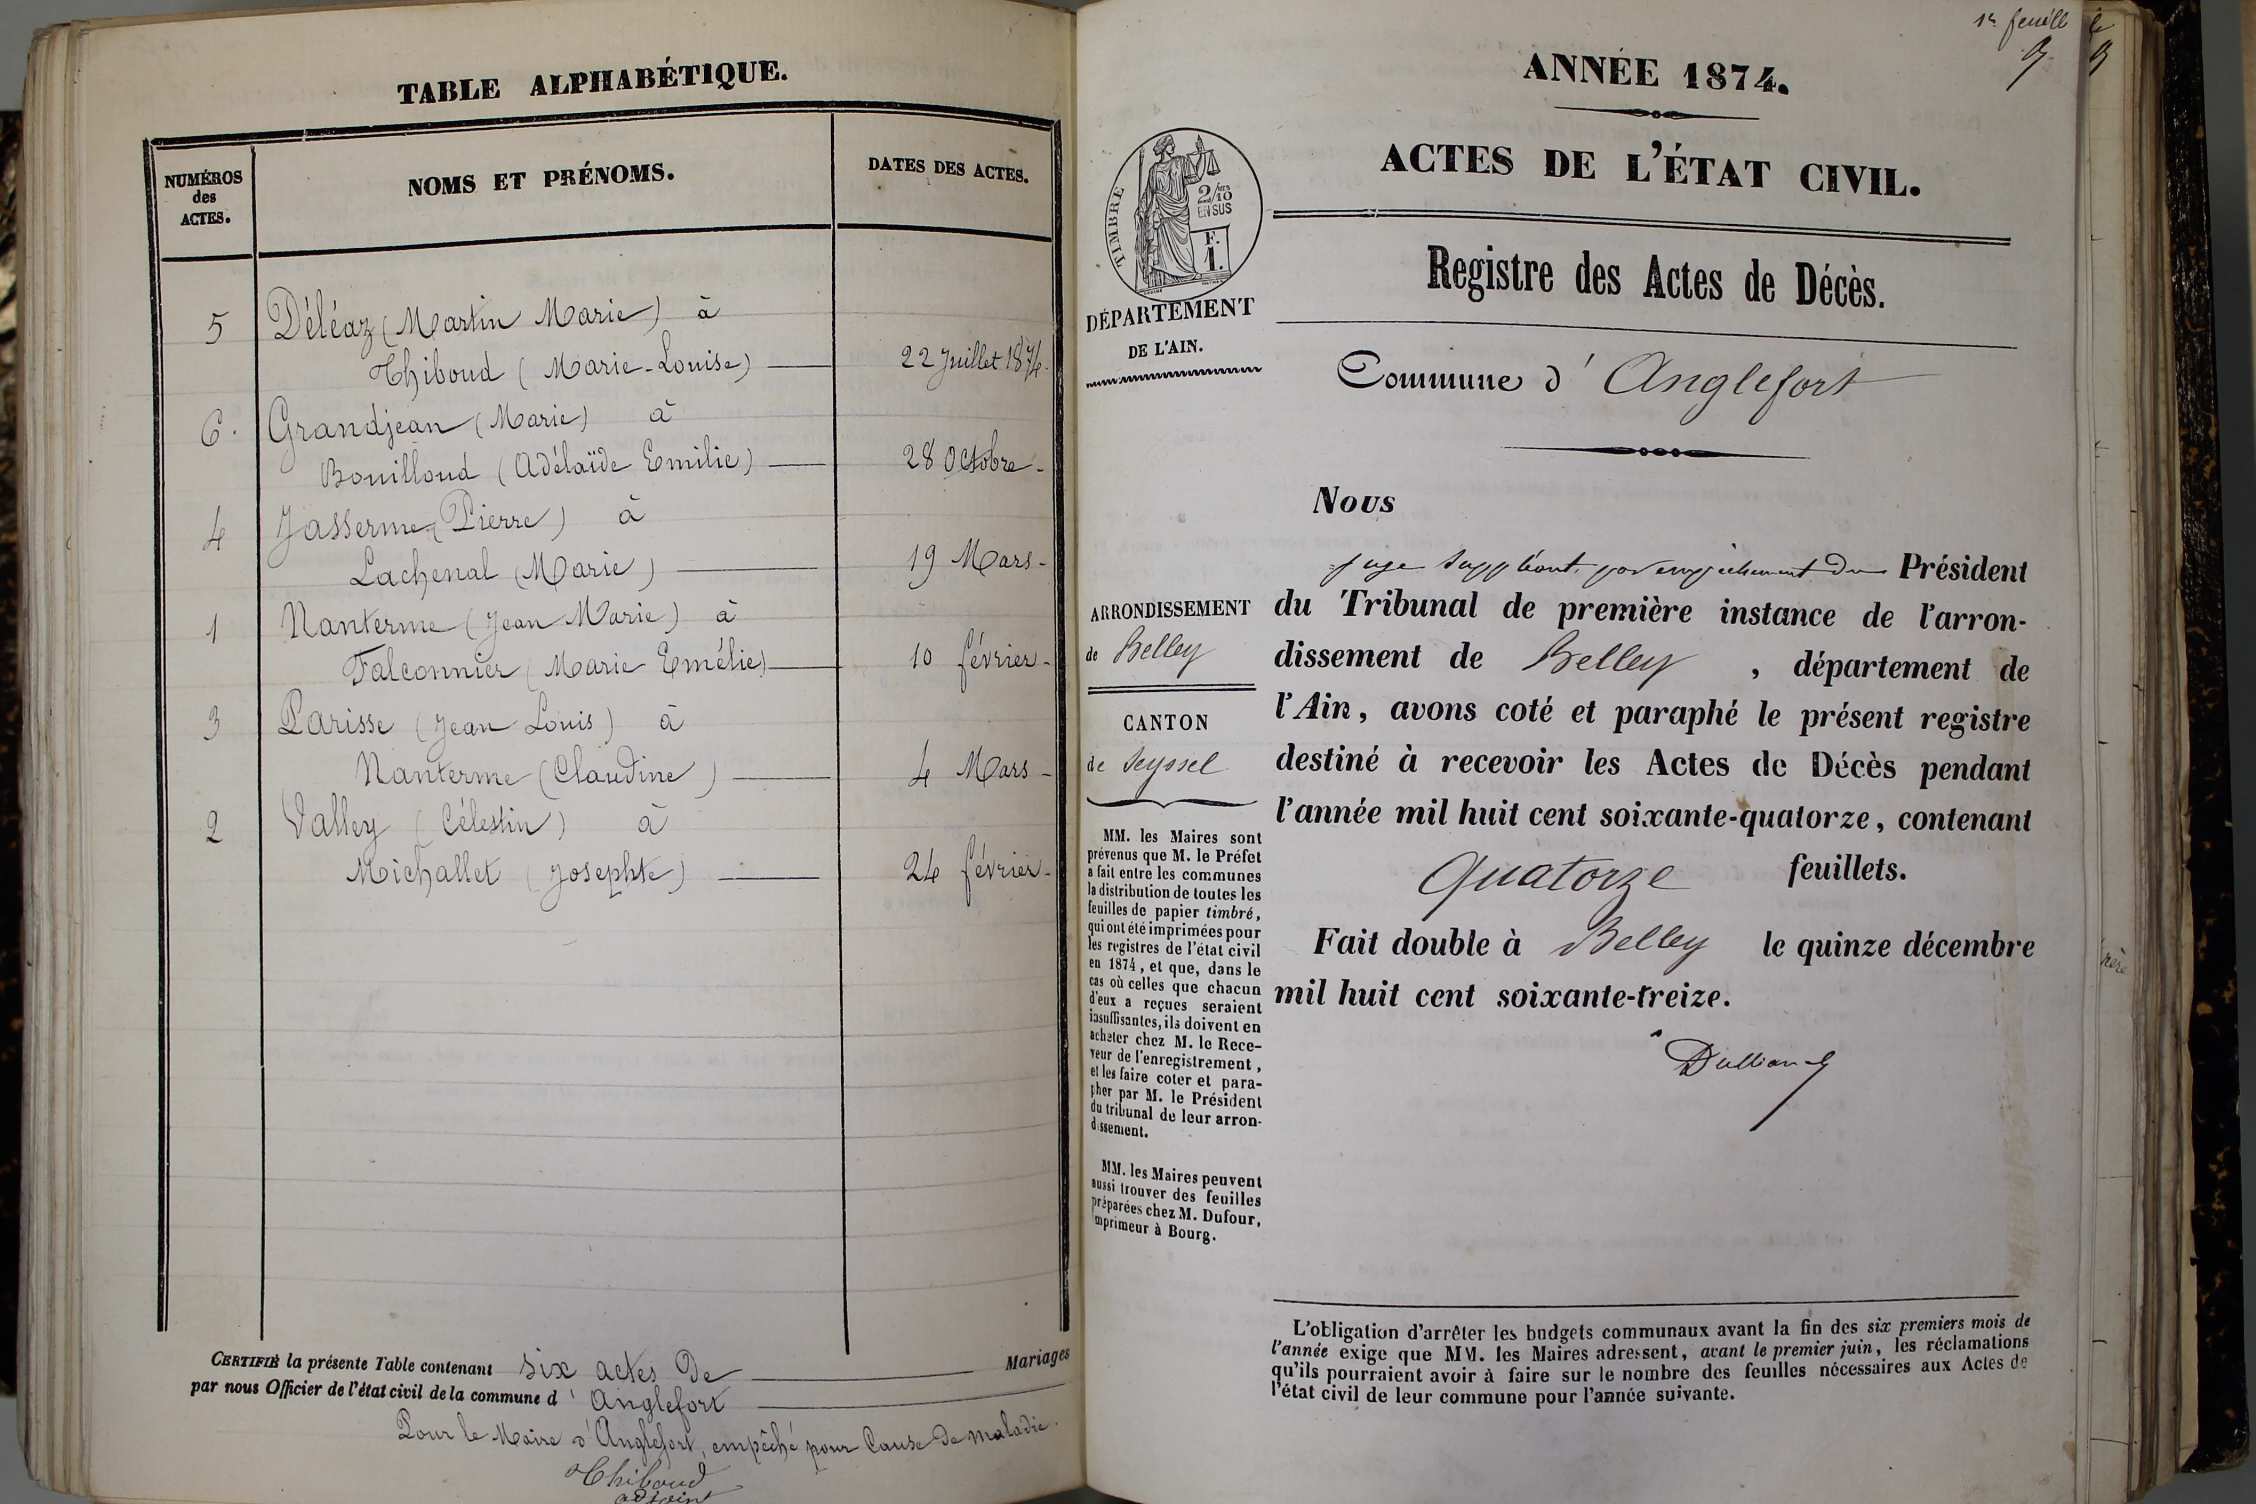 TABLE ALPHABÉTIQUE.
NUMÉROS
des
ACTES.
NOMS ET PRÉNOMS.
DATES DES ACTES.
5 Déléaz (Martin Marie) à
Thiboud (Marie-Louise) 22 Juillet 1874.
6. Grandjean (Marie) à
Bouilloud (Adélaïde Emilie) 28 Octobre
4 Jasserme (Pierre) à
Lachenal (Marie) 19 Mars
1 Nanterme (Jean Marie) à
Falconnier (Marie Emélie) 10 février
3 Parisse (Jean Louis) à
Nanterme (Claudine) 4 Mars
2 Valley (Célestin) à
Michallet (Josephte) 24 février
CERTIFIÉ la présente Table contenant six actes de Mariages
par nous Officier de l'état civil de la commune d'Anglefort
Pour le Maire d'Anglefort, empêché pour Cause de maladie.
Thiboud
adjoint
1er feuille
ANNÉE 1874.
ACTES DE L'ÉTAT CIVIL.
TIMBRE
2/10
EN SUS
F.
1.
DÉPARTEMENT
DE L'AIN.
Registre des Actes de Décès.
Commune d'Anglefort
Nous
juge suppléant, par empêchement du Président
du Tribunal de première instance de l'arron-
dissement de Belley, département de
l'Ain, avons coté et paraphé le présent registre
destiné à recevoir les Actes de Décès pendant
l'année mil huit cent soixante-quatorze, contenant
Quatorze feuillets.
Fait double à Belley le quinze décembre
mil huit cent soixante-treize.
ARRONDISSEMENT
de Belley
CANTON
de Seyssel
MM. les Maires sont
prévenus que M. le Préfet
a fait entre les communes
la distribution de toutes les
feuilles de papier timbré,
qui ont été imprimées pour
les registres de l'état civil
en 1874, et que, dans le
cas où celles que chacun
d'eux a reçues seraient
insuffisantes, ils doivent en
acheter chez M. le Rece-
veur de l'enregistrement,
et les faire coter et para-
pher par M. le Président
du tribunal de leur arron-
dissement.
MM. les Maires peuvent
aussi trouver des feuilles
préparées chez M. Dufour,
imprimeur à Bourg.
L'obligation d'arrêter les budgets communaux avant la fin des six premiers mois de
l'année exige que MM. les Maires adressent, avant le premier juin, les réclamations
qu'ils pourraient avoir à faire sur le nombre des feuilles nécessaires aux Actes de
l'état civil de leur commune pour l'année suivante.